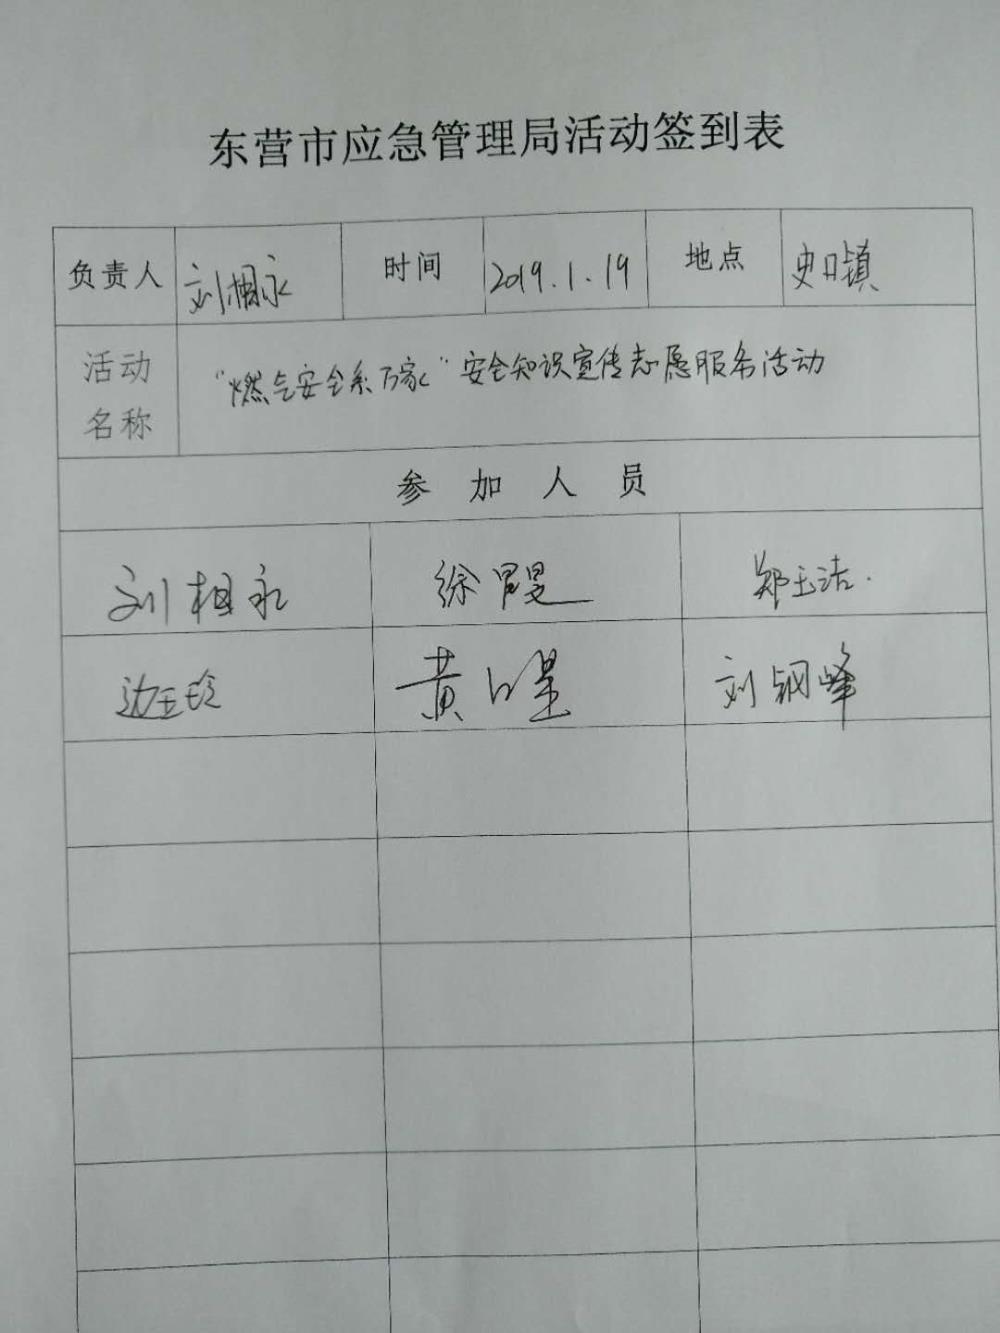 东营市应急管理局活动签到表
负责人 刘相永 时间 2019.1.19 地点 史口镇
活动名称 “燃气安全系万家”安全知识宣传志愿服务活动
参加人员
刘相永 徐 郑玉洁.
边玉玲 黄 刘钢峰